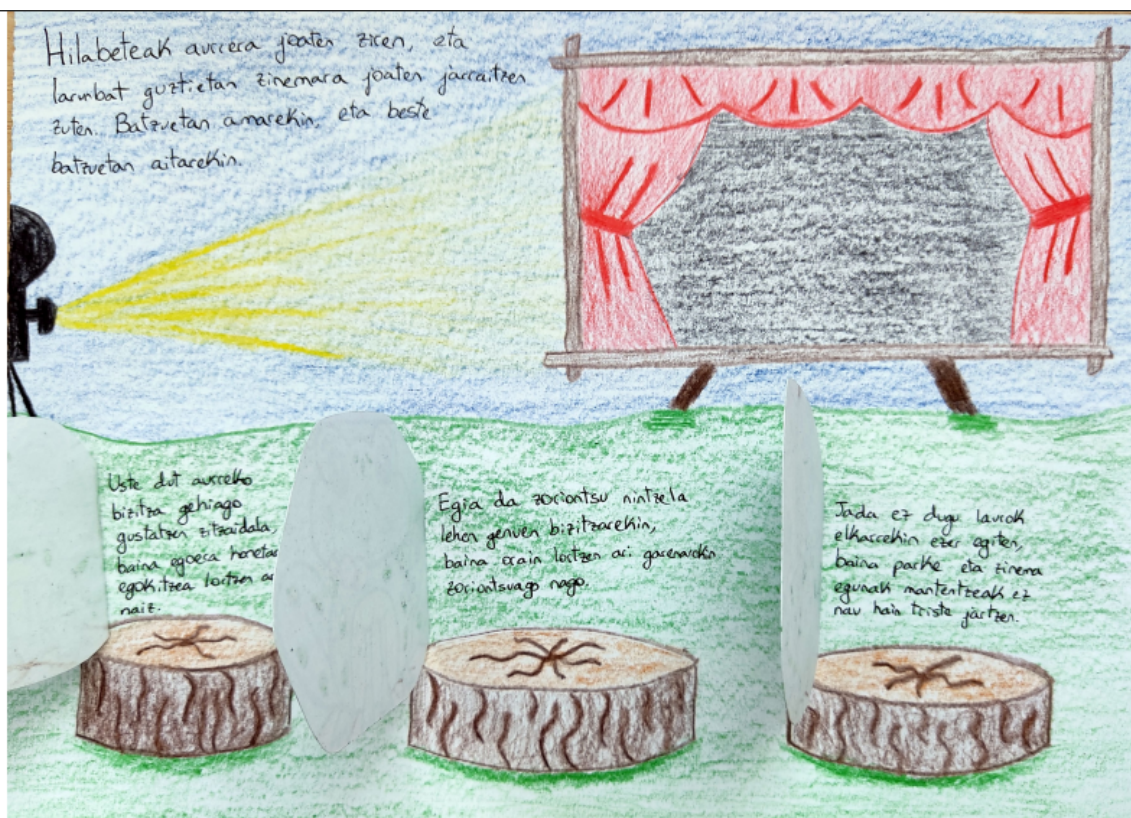 Hilabeteak aurrera joaten ziren, eta
larunbat guztietan zinemara joaten jarraitzen
zuten. Batzuetan amarekin, eta beste
batzuetan aitarekin.
Uste dut aurreko
bizitza gehiago
gustatzen zitzaidala,
baina egoera honetar
egokitzea lortzen ar
naiz.
Egia da zoriontsu nintzela
lehen genuen bizitzarekin,
baina orain lortzen ari garenarekin
zoriontsuago nago.
Jada ez dugu laurok
elkarrekin ezer egiten,
baina parke eta zinema
egunak mantentzeak ez
nau hain triste jartzen.